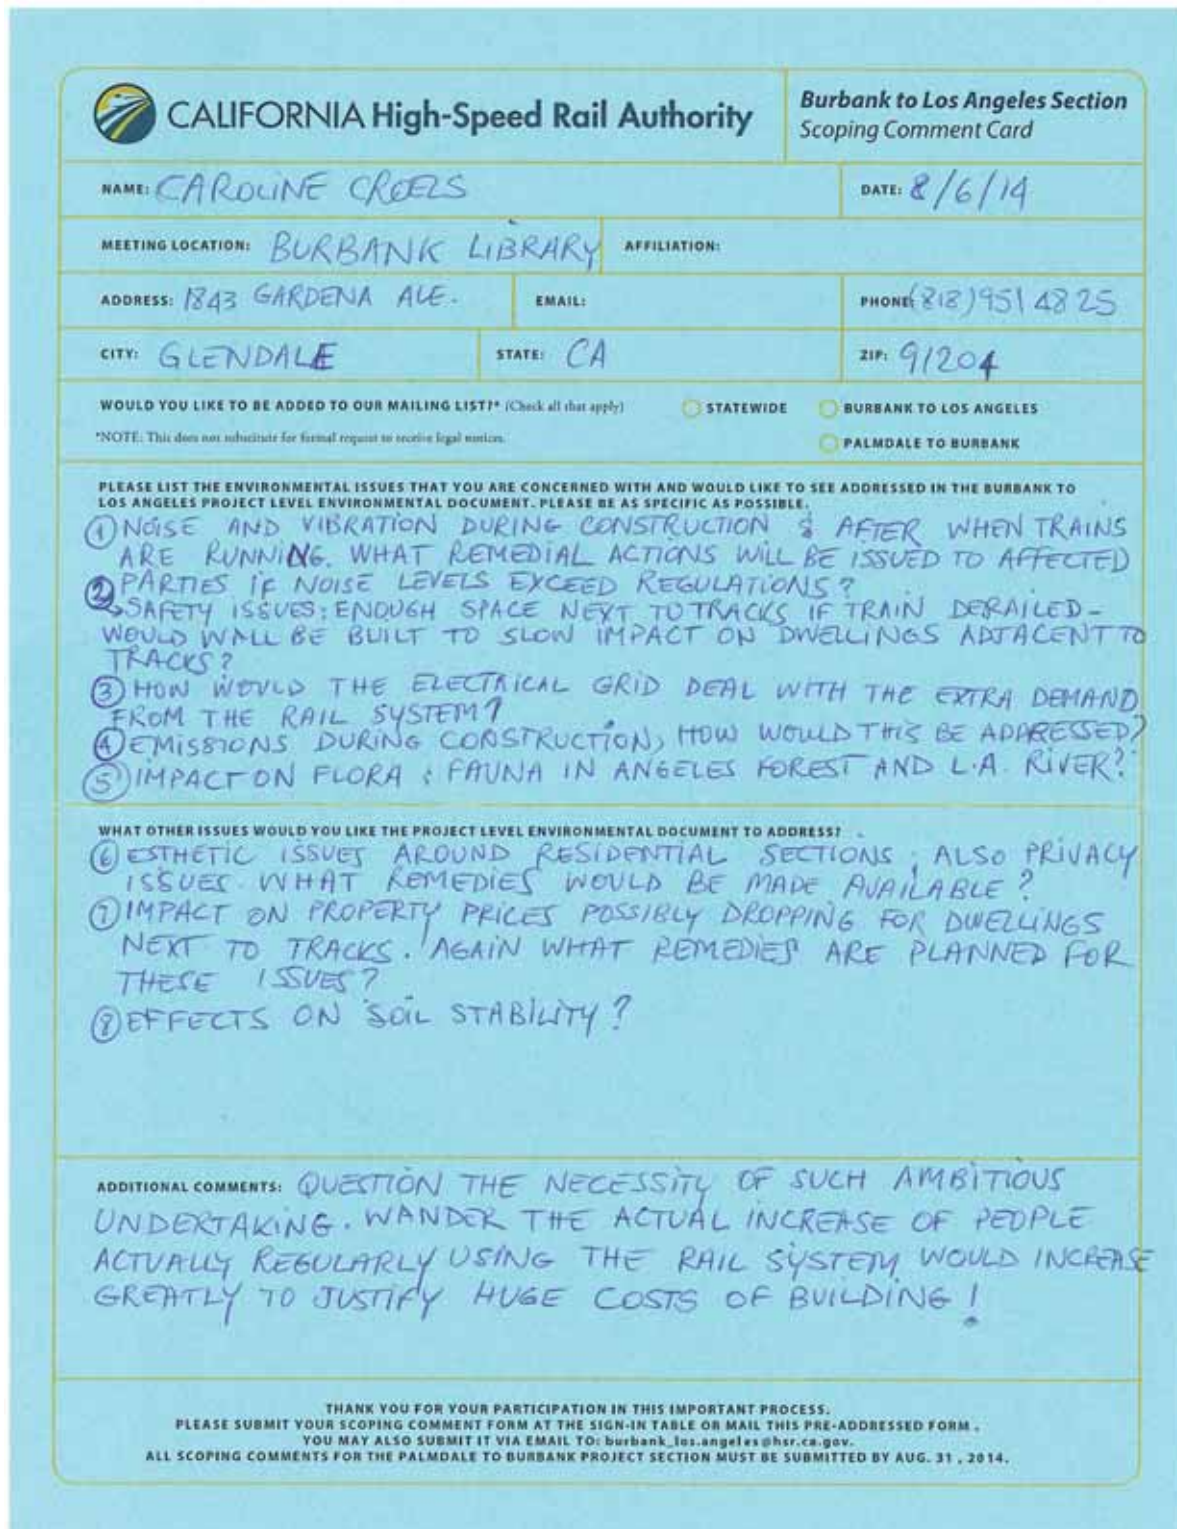 CALIFORNIA High-Speed Rail Authority
Burbank to Los Angeles Section
Scoping Comment Card
NAME: CAROLINE CROELS
DATE: 8/6/14
MEETING LOCATION: BURBANK LIBRARY
AFFILIATION:
ADDRESS: 1843 GARDENA AVE.
EMAIL:
PHONE: (818) 951 4825
CITY: GLENDALE
STATE: CA
ZIP: 91204
WOULD YOU LIKE TO BE ADDED TO OUR MAILING LIST?* (Check all that apply)
STATEWIDE
BURBANK TO LOS ANGELES
*NOTE: This does not substitute for formal request to receive legal notices.
PALMDALE TO BURBANK
PLEASE LIST THE ENVIRONMENTAL ISSUES THAT YOU ARE CONCERNED WITH AND WOULD LIKE TO SEE ADDRESSED IN THE BURBANK TO
LOS ANGELES PROJECT LEVEL ENVIRONMENTAL DOCUMENT. PLEASE BE AS SPECIFIC AS POSSIBLE.
① NOISE AND VIBRATION DURING CONSTRUCTION & AFTER WHEN TRAINS
ARE RUNNING. WHAT REMEDIAL ACTIONS WILL BE ISSUED TO AFFECTED
PARTIES IF NOISE LEVELS EXCEED REGULATIONS?
② SAFETY ISSUES: ENOUGH SPACE NEXT TO TRACKS IF TRAIN DERAILED -
WOULD WALL BE BUILT TO SLOW IMPACT ON DWELLINGS ADJACENT TO
TRACKS?
③ HOW WOULD THE ELECTRICAL GRID DEAL WITH THE EXTRA DEMAND
FROM THE RAIL SYSTEM?
④ EMISSIONS DURING CONSTRUCTION, HOW WOULD THIS BE ADDRESSED?
⑤ IMPACT ON FLORA & FAUNA IN ANGELES FOREST AND L.A. RIVER?
WHAT OTHER ISSUES WOULD YOU LIKE THE PROJECT LEVEL ENVIRONMENTAL DOCUMENT TO ADDRESS?
⑥ ESTHETIC ISSUES AROUND RESIDENTIAL SECTIONS, ALSO PRIVACY
ISSUES. WHAT REMEDIES WOULD BE MADE AVAILABLE?
⑦ IMPACT ON PROPERTY PRICES POSSIBLY DROPPING FOR DWELLINGS
NEXT TO TRACKS. AGAIN WHAT REMEDIES ARE PLANNED FOR
THESE ISSUES?
⑧ EFFECTS ON SOIL STABILITY?
ADDITIONAL COMMENTS: QUESTION THE NECESSITY OF SUCH AMBITIOUS
UNDERTAKING. WANDER THE ACTUAL INCREASE OF PEOPLE
ACTUALLY REGULARLY USING THE RAIL SYSTEM WOULD INCREASE
GREATLY TO JUSTIFY HUGE COSTS OF BUILDING!
THANK YOU FOR YOUR PARTICIPATION IN THIS IMPORTANT PROCESS.
PLEASE SUBMIT YOUR SCOPING COMMENT FORM AT THE SIGN-IN TABLE OR MAIL THIS PRE-ADDRESSED FORM.
YOU MAY ALSO SUBMIT IT VIA EMAIL TO: burbank_los.angeles@hsr.ca.gov.
ALL SCOPING COMMENTS FOR THE PALMDALE TO BURBANK PROJECT SECTION MUST BE SUBMITTED BY AUG. 31, 2014.